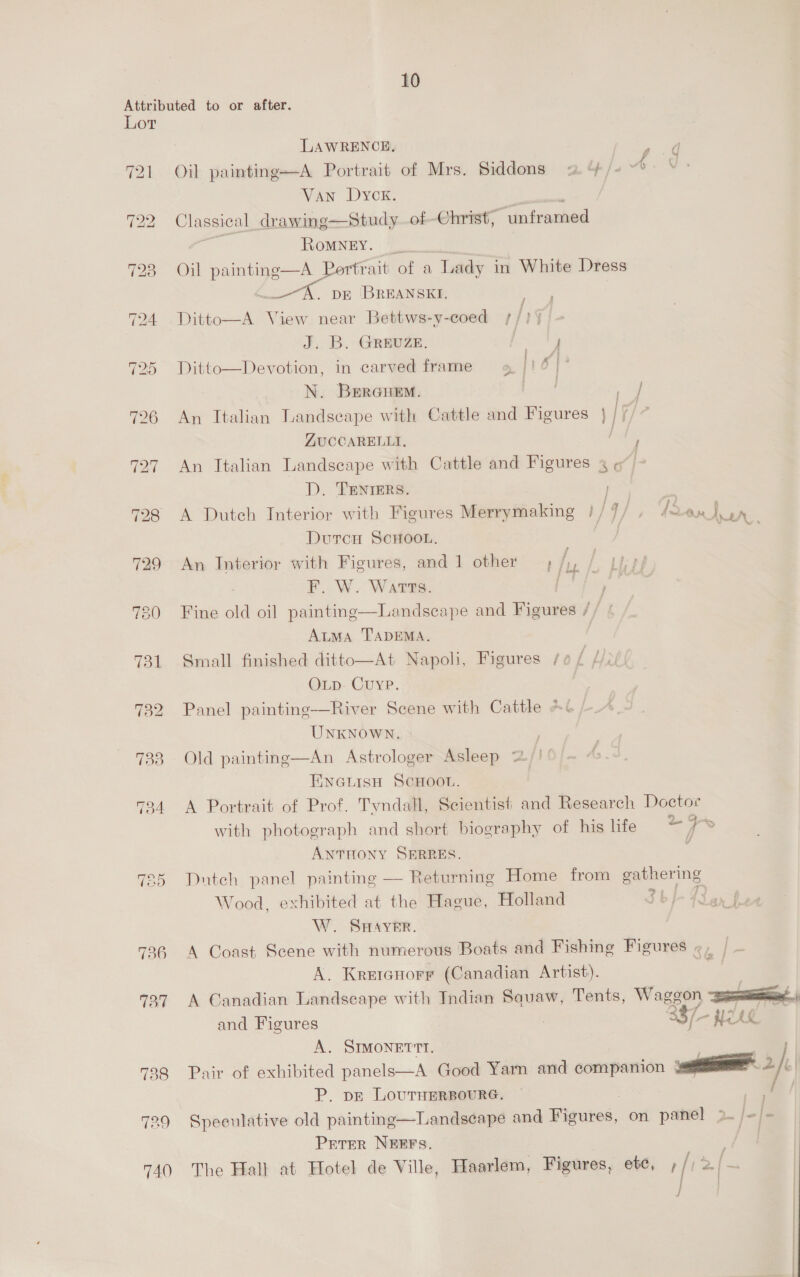 10
Attributed to or after.
Lot
LAWRENCE.
721 Oil painting—A Portrait of Mrs. Siddons 24/-
VAN DYCK.
722 Classical drawing—Study of Christ, unframed
ROMNEY.
723 Oil painting—A Portrait of a Lady in White Dress
A. DE BREANSKI.
724 Ditto—A View near Bettws-y-coed
J. B. GREUZE.
725 Ditto—Devotion, in carved frame
N. BERGHEM.
726 An Italian Landscape with Cattle and Figures
ZUCCARELLI.
727 An Italian Landscape with Cattle and Figures
D. TENIERS.
728 A Dutch Interior with Figures Merrymaking
DUTCH SCHOOL.
729 An Interior with Figures, and 1 other
F. W. WATTS.
730 Fine old oil painting—Landscape and Figures
ALMA TADEMA.
731 Small finished ditto—At Napoli, Figures
OLD CUYP.
732 Panel painting—River Scene with Cattle
UNKNOWN.
733 Old painting—An Astrologer Asleep
ENGLISH SCHOOL.
734 A Portrait of Prof. Tyndall, Scientist and Research Doctor
with photograph and short biography of his life
ANTHONY SERRES.
735 Dutch panel painting — Returning Home from gathering
Wood, exhibited at the Hague, Holland
W. SHAYER.
736 A Coast Scene with numerous Boats and Fishing Figures
A. KREIGHOFF (Canadian Artist).
737 A Canadian Landscape with Indian Squaw, Tents, Waggon
and Figures
A. SIMONETTI.
738 Pair of exhibited panels—A Good Yarn and companion
P. DE LOUTHERBOURG.
739 Speculative old painting—Landscape and Figures, on panel
PETER NEEFS.
740 The Hall at Hotel de Ville, Haarlem, Figures, etc,